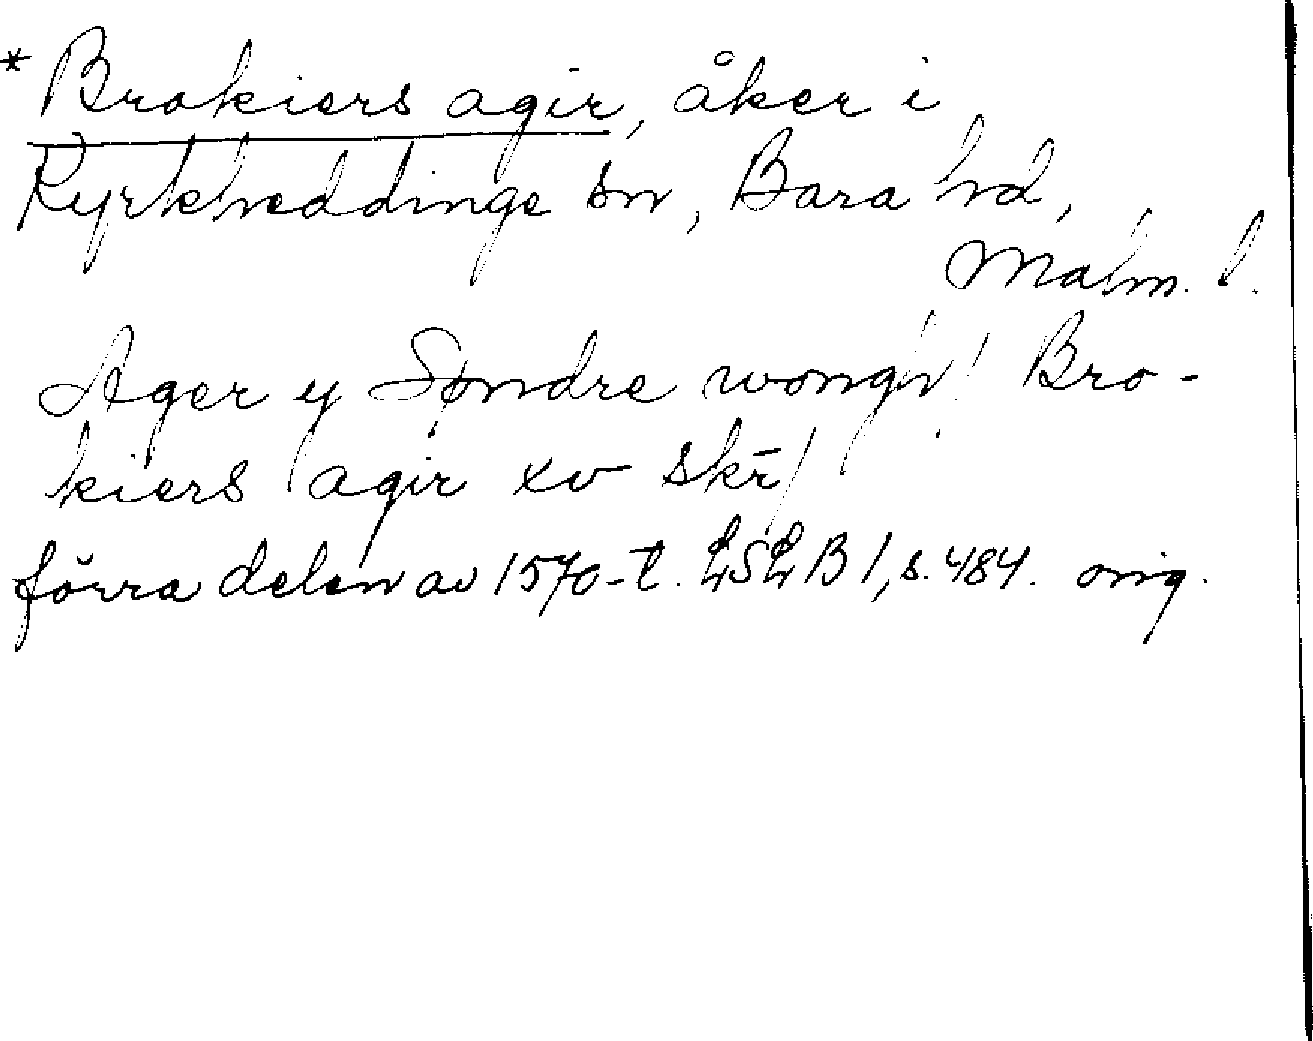 * Brokiers agir, åker i
Kyrkheddinge sn, Bara hd,
Malm. l.
Ager y Søndre wongh! Bro-
kiers agir xv skr̄/
förra delen av 1570-t. LSLB 1, s. 484. orig.